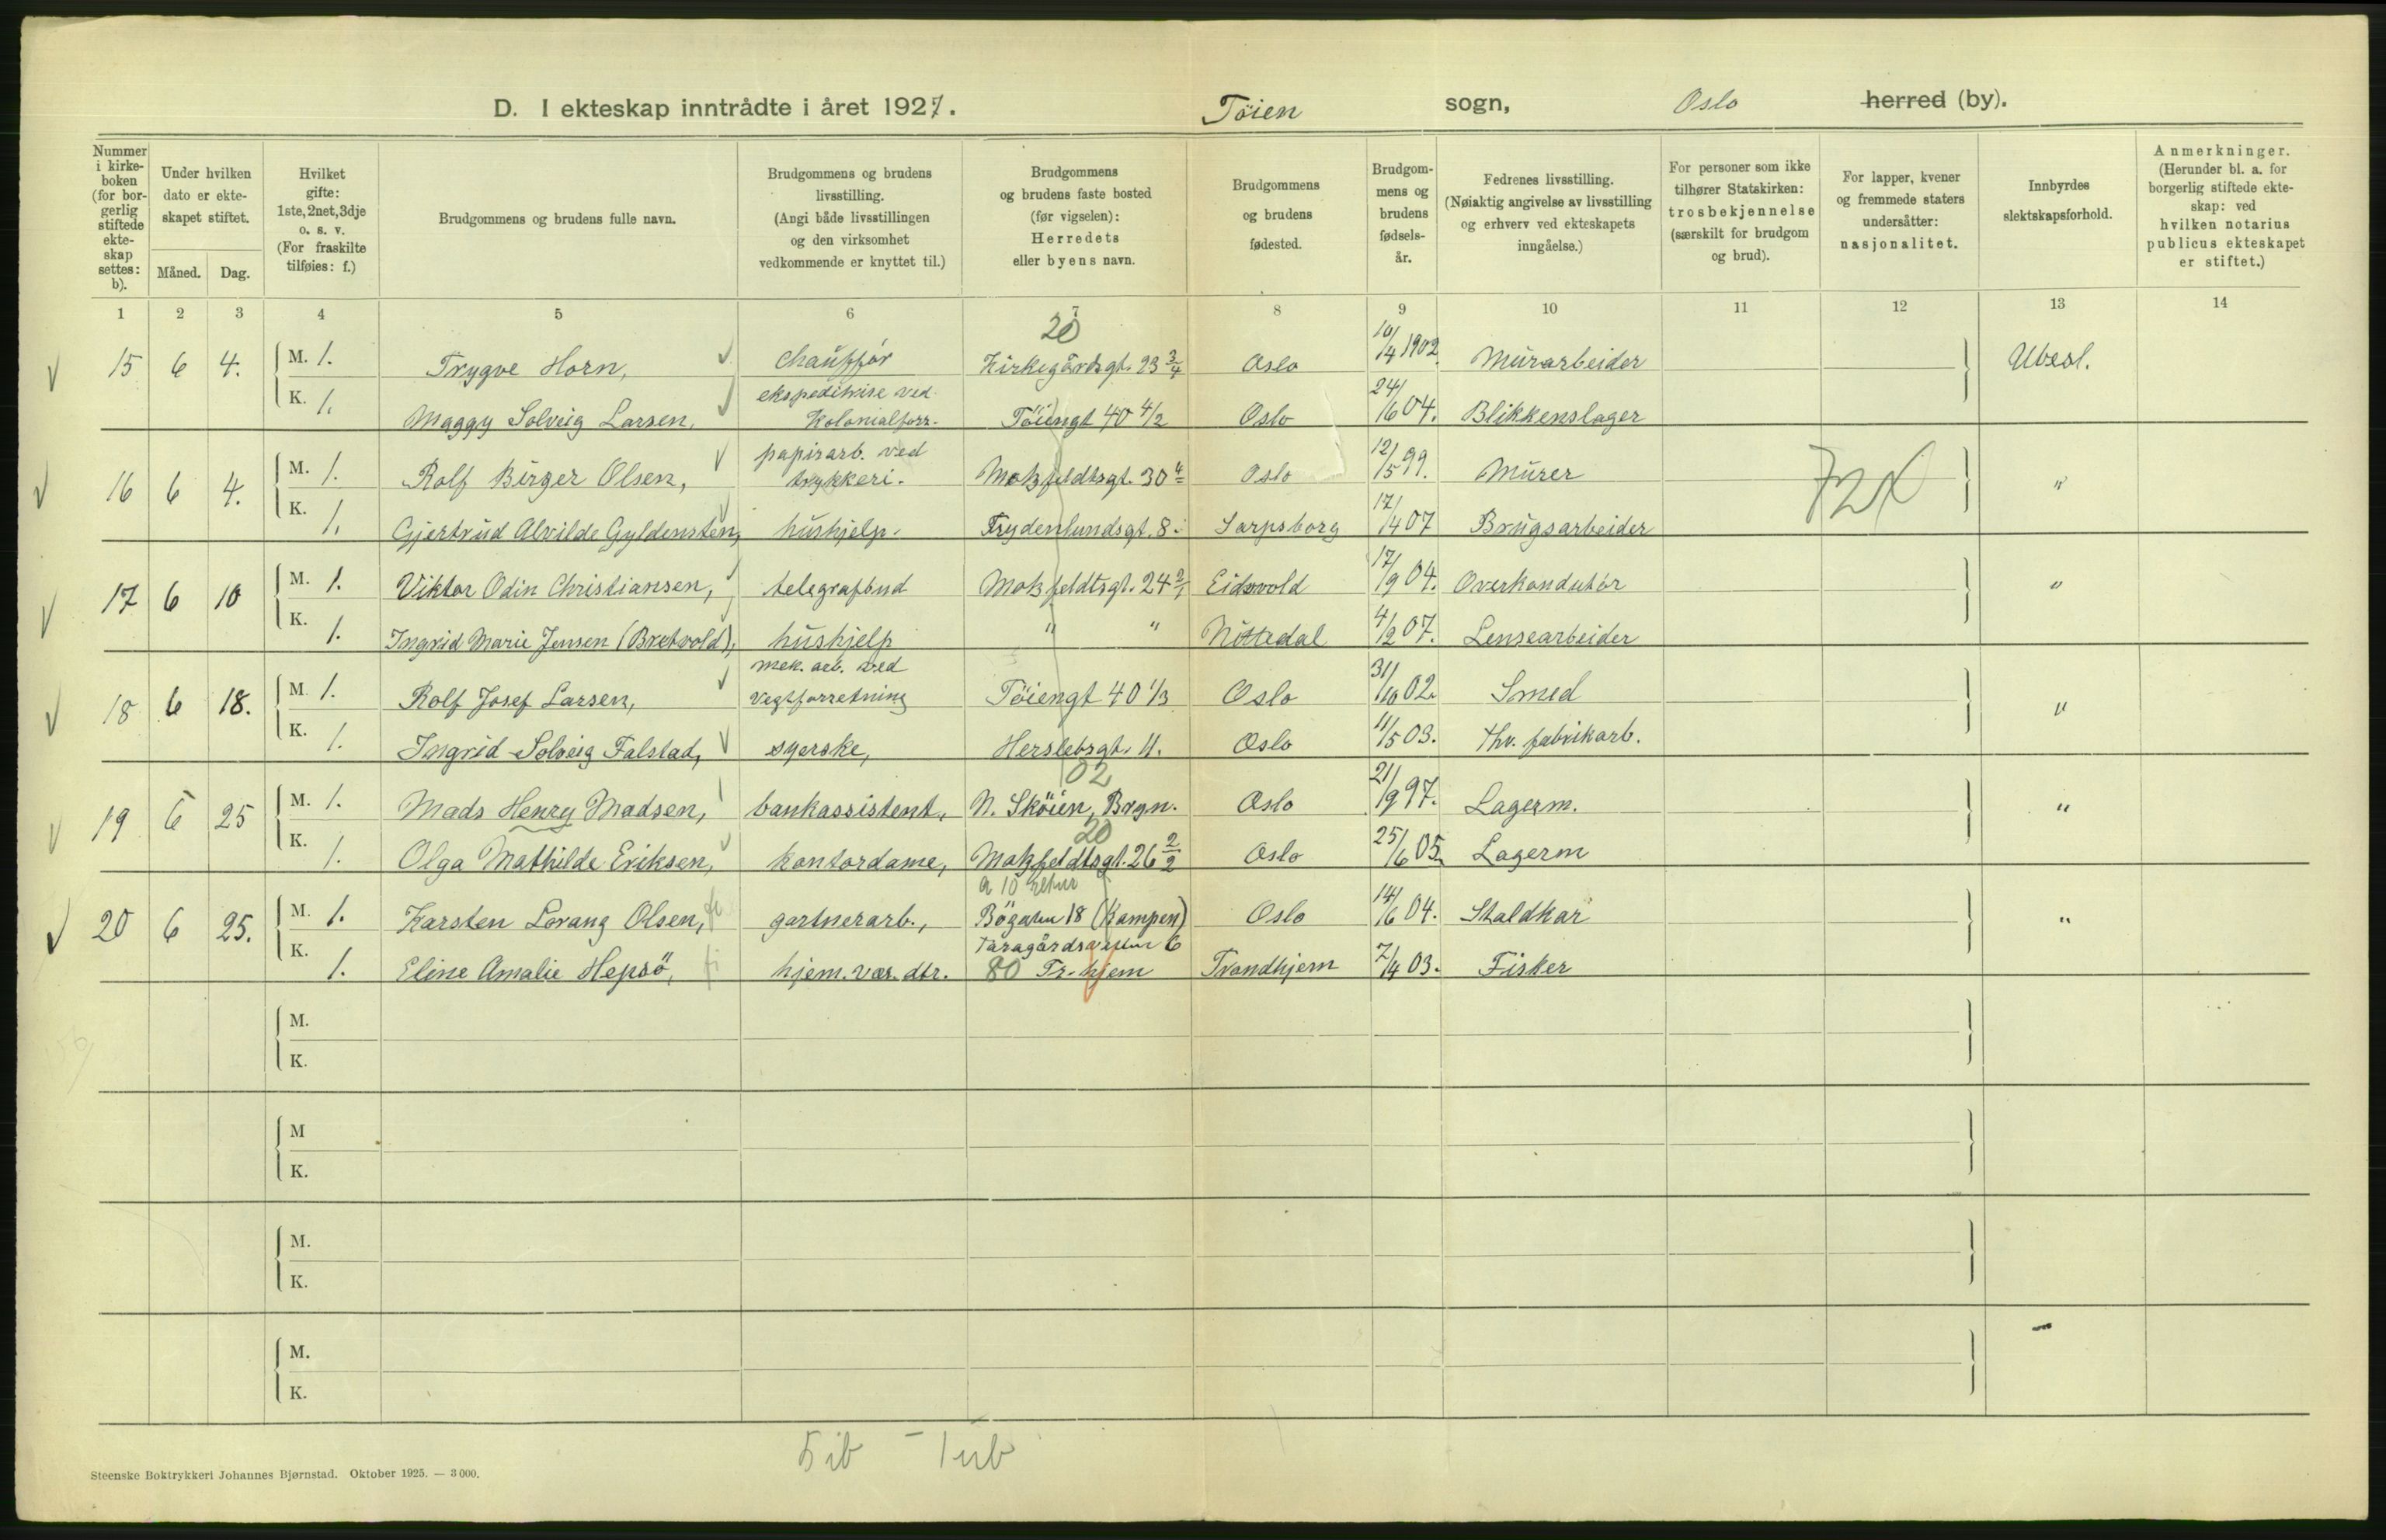 D. I ekteskap inntrådte i året 1927. Töien sogn, Oslo herred (by).
Nummer i kirke-boken (for bor-gerlig stiftede ekte-skap settes: b).
Under hvilken dato er ekte-skapet stiftet.
Måned. Dag.
Hvilket gifte: 1ste, 2net, 3dje o. s. v. (For fraskilte tilføies: f.)
Brudgommens og brudens fulle navn.
Brudgommens og brudens livsstilling. (Angi både livsstillingen og den virksomhet vedkommende er knyttet til.)
Brudgommens og brudens faste bosted (før vigselen): Herredets eller byens navn.
Brudgommens og brudens fødested.
Brudgom-mens og brudens fødsels-år.
Fedrenes livsstilling. (Nøiaktig angivelse av livsstilling og erhverv ved ekteskapets inngåelse.)
For personer som ikke tilhører Statskirken: trosbekjennelse (særskilt for brudgom og brud).
For lapper, kvener og fremmede staters undersåtter: nasjonalitet.
Innbyrdes slektskapsforhold.
Anmerkninger. (Herunder bl. a. for borgerlig stiftede ekte-skap: ved hvilken notarius publicus ekteskapet er stiftet.)
1 2 3 4 5 6 7 8 9 10 11 12 13 14
20
15 6 4. M. 1. Trygve Horn, chaufför Kirkegårdsgt. 23 3/4 Oslo 10/4 1902. Murarbeider Ubesl.
K. 1. Maggy Solveig Larsen, ekspeditrise ved Kolonialforr. Töiengt 40 4/2 Oslo 24/6 04. Blikkenslager
16 6 4. M. 1. Rolf Birger Olsen, papirarb. ved trykkeri. Motzfeldtsgt. 30 4 Oslo 12/5 99. Murer "
K. 1. Gjertrud Alvilde Gyldensten, hushjelp. Frydenlundsgt. 8. Sarpsborg 17/4 07 Brugsarbeider
17 6 10 M. 1. Viktor Odin Christiansen, telegrafbud Motzfeldtsgt. 24 2/1 Eidsvold 17/9 04. Overkonduktör "
K. 1. Ingrid Marie Jensen (Bretvold), hushjelp " " Nittedal 4/2 07. Lensearbeider
18 6 18. M. 1. Rolf Josef Larsen, mek. arb. ved vegtforretning Töiengt 40 1/3 Oslo 31/10 02. Smed "
K. 1. Ingrid Solveig Falstad, syerske, Herslebsgt. 11. Oslo 11/5 03. thv. fabrikarb.
02
19 6 25 M. 1. Mads Henry Madsen, bankassistent, N. Sköien, Brgn. Oslo 21/9 97. Lagerm. "
20
K. 1. Olga Mathilde Eriksen, kontordame, Motzfeldtsgt. 26 2/2 Oslo 25/6 05. Lagerm
20 6 25. M. 1. Karsten Lorang Olsen, gartnerarb., Bögaten 18 (Kampen) Oslo 14/6 04. Staldkar "
K. 1. Eline Amalie Hepsö, hjem. vær. dtr. 80 Tr.hjem Trondhjem 7/4 03. Fisker
M.
K.
M
K.
M.
K.
M.
K.
5 ib – 1 ub
Steenske Boktrykkeri Johannes Bjørnstad. Oktober 1925. — 3000.